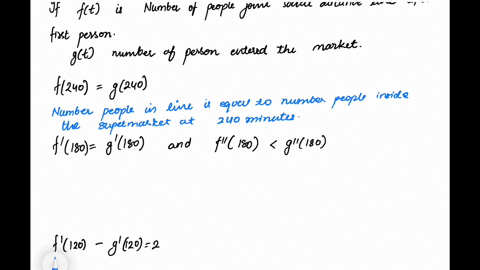 If f(t) is Number of people joins social distance line
first person.
g(t) number of person entered the market.
f(240) = g(240)
Number people in line is equal to number people inside
the supermarket at 240 minutes.
f'(180) = g'(180) and f''(180) < g''(180)
f'(120) - g'(120) = 2